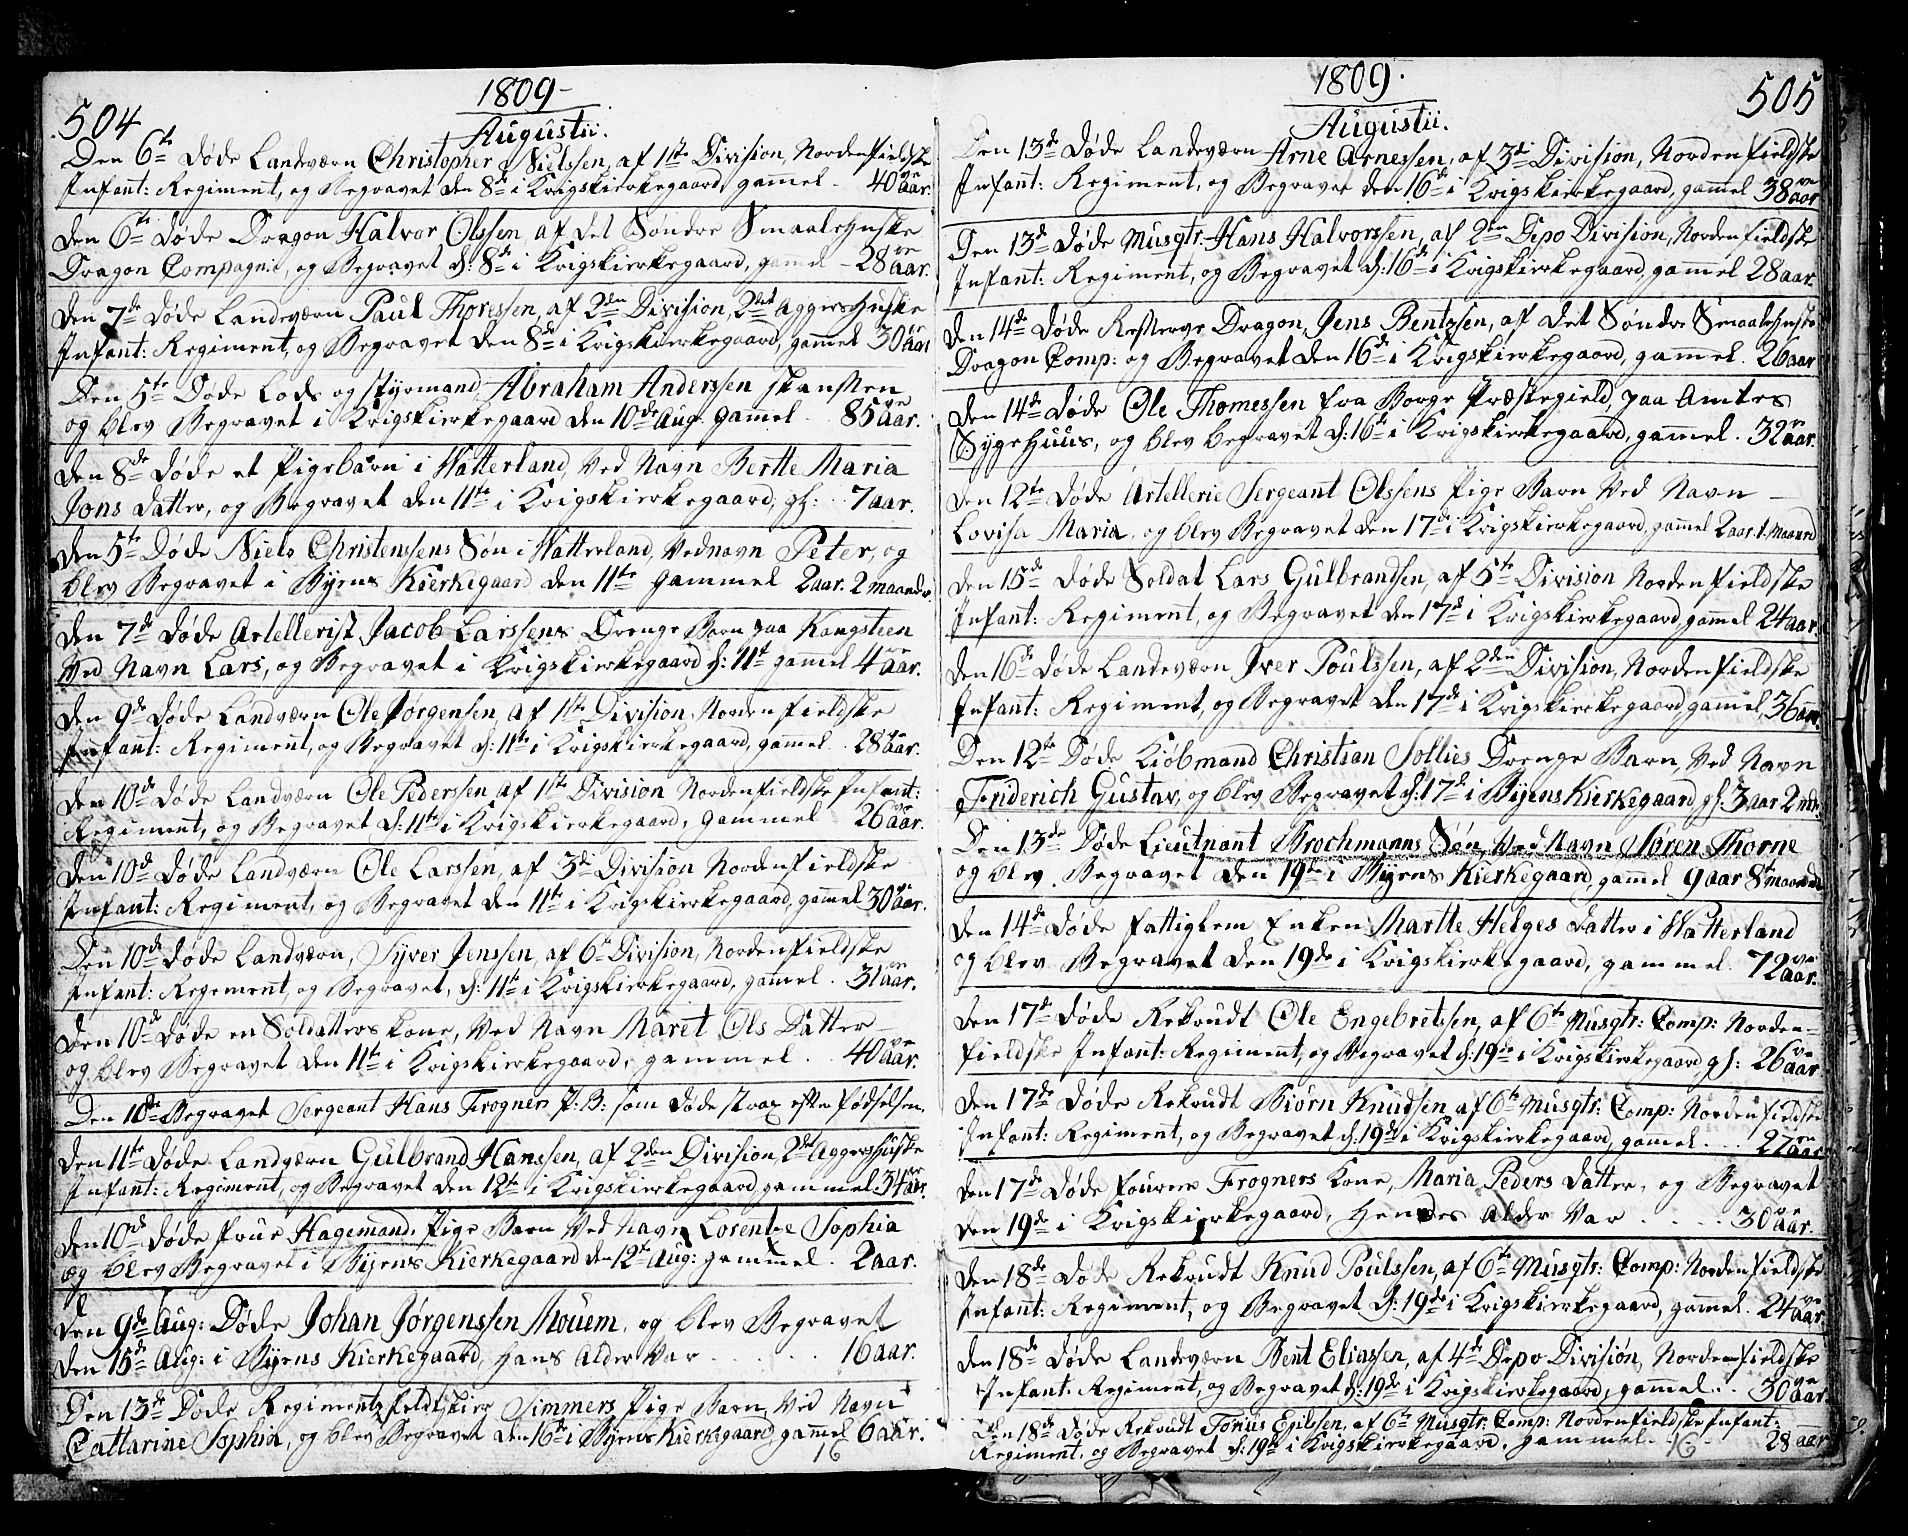 504
1809-
Augustii.
Den 6te Døde Landværn Christopher Nielssen, af 1ste Division, Nordenfieldske
Infant: Regiment, og Begravet den 8de i Krigskierkegaard, gammel. 40ve aar.
Den 6te Døde Dragon Halvor Olssen af det Søndre Smaalehnske
Dragon Compagnie, og Begravet d: 8de i Krigskierkegaard, gamel - 28ve aar.
Den 7de Døde Landeværn Paul Thoressen, af 2den Division, 2det Aggershuske
Infant: Regiment, og Begravet den 8de i Krigskierkegaard, gammel 30ve aar
Den 5te Døde Lods og Styrmand Abraham Anderssen Skansen
og blev Begravet i Krigskierkegaard den 10de Aug. gammel 85ve aar.
Den 8de Døde et Pigebarn i Watterland, Ved Navn Bertte Maria
Jons Datter, og Begravet den 11te i Krigskierkegaard, gl: 7 aar.
Den 5te Døde Niels Christenssens Søn i Watterland, Vednavn Peter, og
blev Begravet i Byens Kierkegaard den 11te gammel 2 aar. 2 maander.
Den 7de Døde Artellerist Jacob Larssens Drenge Barn paa Kongsteen
Ved Navn Lars, og Begravet i Krigskierkegaard d: 11te gammel 4ve aar.
Den 9de Døde Landværn Ole Jørgensen, af 1ste Division, Nordenfieldske
Infant: Regiment, og Begravet d: 11te i Krigskierkegaard, gamel. 28ve aar.
Den 10de Døde Landværn Ole Pederssen, af 1ste Division Nordenfieldske Infant:
Regiment, og Begravet d: 11te i Krigskierkegaard, gammel 26ve aar.
Den 10de Døde Landværn Ole Larssen, af 3de Division Nordenfieldske
Infant: Regiment, og Begravet den 11te i Krigskierkegaard, gammel 30ve aar.
Den 10de Døde Landværn, Syver Jenssen, af 6te Division, Nordenfieldske
Infant: Regement, og Begravet, d: 11te i Krigskierkegaard, gammel. 31ve aar.
Den 10de Døde en Soldatters kone, Ved Navn Maret Ols Datter
og blev Begravet den 11te i Krigskierkegaard, gammel. 40ve aar.
Den 10de Begravet Sergeant Hans Frogners P: B: som døde strax efter fødselsen.
Den 11te Døde Landværn Gulbrand Hanssen, af 2den Division 2det Aggershuske
Infant: Regiment, og Begravet den 12te i Krigskierkegaard gammel. 34ve aar.
Den 10de Døde Frue Hagemand, Pige Barn Ved Navn Lorentze Sophia
og blev Begravet i Byens Kierkegaard den 12te Aug: gammel. 2 aar.
Den 9de Aug: Døde Johan Jørgenssen Mouem, og blev Begravet
den 15de Aug: i Byens Kierkegaard, hans Alder Var 16 aar.
Den 13de Døde Regimentz feldtskier Simmers Pige Barn, Ved Navn
Cattarine Sophia, og blev Begravet den 16de i Byens Kierkegaard, gammel 6 aar.
16
1809.
505
Augustii.
Den 13de Døde Landeværn Arne Arnessen, af 3de Division, Nordenfieldske
Infant: Regiment, og Begravet den 16de i Krigskierkegaard, gammel 38ve aar
Den 13de Døde Musqtr. Hans Halvorssen, af 2den Depo Division, Nordenfieldske
Infant: Regiment, og Begravet d: 16de i Krigskierkegaard, gammel 28 aar.
Den 14de Døde Reserve Dragon, Jens Bentzsen, af det Søndre Smaalehnske
Dragon Comp: og Begravet den 16de i Krigskierkegaard, gammel. 26 aar
Den 14de Døde Ole Thomessen fra Borge Præstegield, paa Amtes
Sygehuus, og blev begravet d: 16de i Krigskierkegaard, gammel. 32ve aar.
Den 12te Døde Artellerie Sergeant Olssens Pige Barn Ved Navn
Lovisa Maria og blev Begravet den 17de i Krigskierkegaard, gammel 2 aar. 1. Maaned
Den 15de Døde Soldat Lars Gulbrandsen, af 5te Division Nordenfieldske
Infant: Regiment, og Begravet den 17de i Krigskierkegaard, gammel 24 aar.
Den 16de Døde Landeværn Iver Poulssen, af 2den Division, Nordenfieldske
Infant: Regiment, og Begravet den 17de i Krigskierkegaard, gammel 36 aar.
Den 12te Døde Kiøbmand Christian Sollies Drenge Barn, Ved Navn
Friderich Gustav, og blev Begravet d: 17de i Byens Kierkegaard, gl: 3 aar 2 mdr.
Den 13de Døde Lieutnant Brochmanns Søn, Ved Navn Søren Thorne
og blev Begravet den 19te i Byens Kierkegaard, gammel 9 aar 8te maander
Den 14de Døde fattiglem Enken Martte Helges Datter i Watterland
og blev Begravet den 19de i Krigskierkegaard, gammel. 72ve aar.
Den 17de Døde Rekrudt Ole Engebretssen, af 6te Musqtr: Comp: Norden-
fieldske Infant: Regiment, og Begravet d: 19de i Krigskierkegaard, gl: 26ve aar.
Den 17de Døde Rekrudt Biørn Knudsen af 6te Musqtr: Comp: Nordenfieldske
Infant: Regiment, og Begravet d: 19de i Krigskierkegaard, gamel. 27ve aar.
Den 17de Døde fourer Frogners Kone, Maria Peders Datter, og Begravet
den 19de i Krigskierkegaard, Hendes Alder Var 30ve aar.
Den 18de Døde Rekrudt Knud Poulssen, af 6te Musqtr: Comp: Nordenfieldske
Infant: Regiment, og Begravet d: 19de i Krigskierkegaard, gammel. 24ve aar.
Den 18de Døde Landeværn Bent Eliassen, af 4de Depo Division, Nordenfieldske
Infant: Regiment, og Begravet d: 19de i Krigskierkegaard, gammel. 30ve aar
Den 18de Døde Rekrudt Tonius Egilssen, af 6te Musqtr: Comp: Nordenfieldske Infant:
Regiment, og Begravet d: 19de i Krigskierkegaard, gammel. 28 aar
16